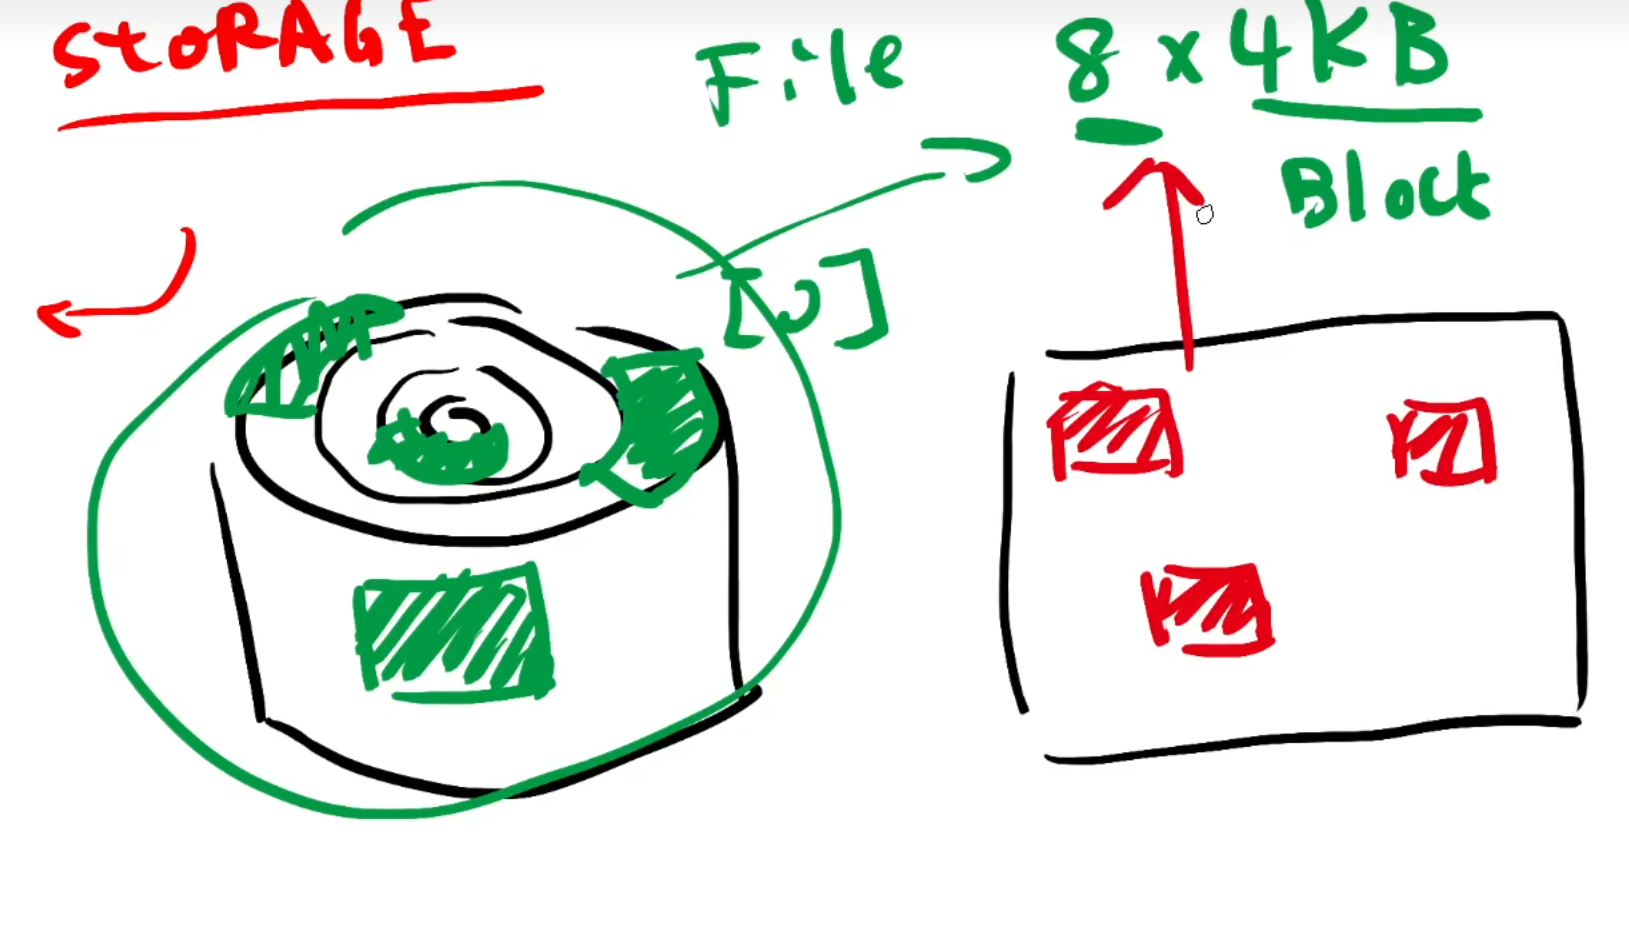 STORAGE
File 8 x 4KB
Block